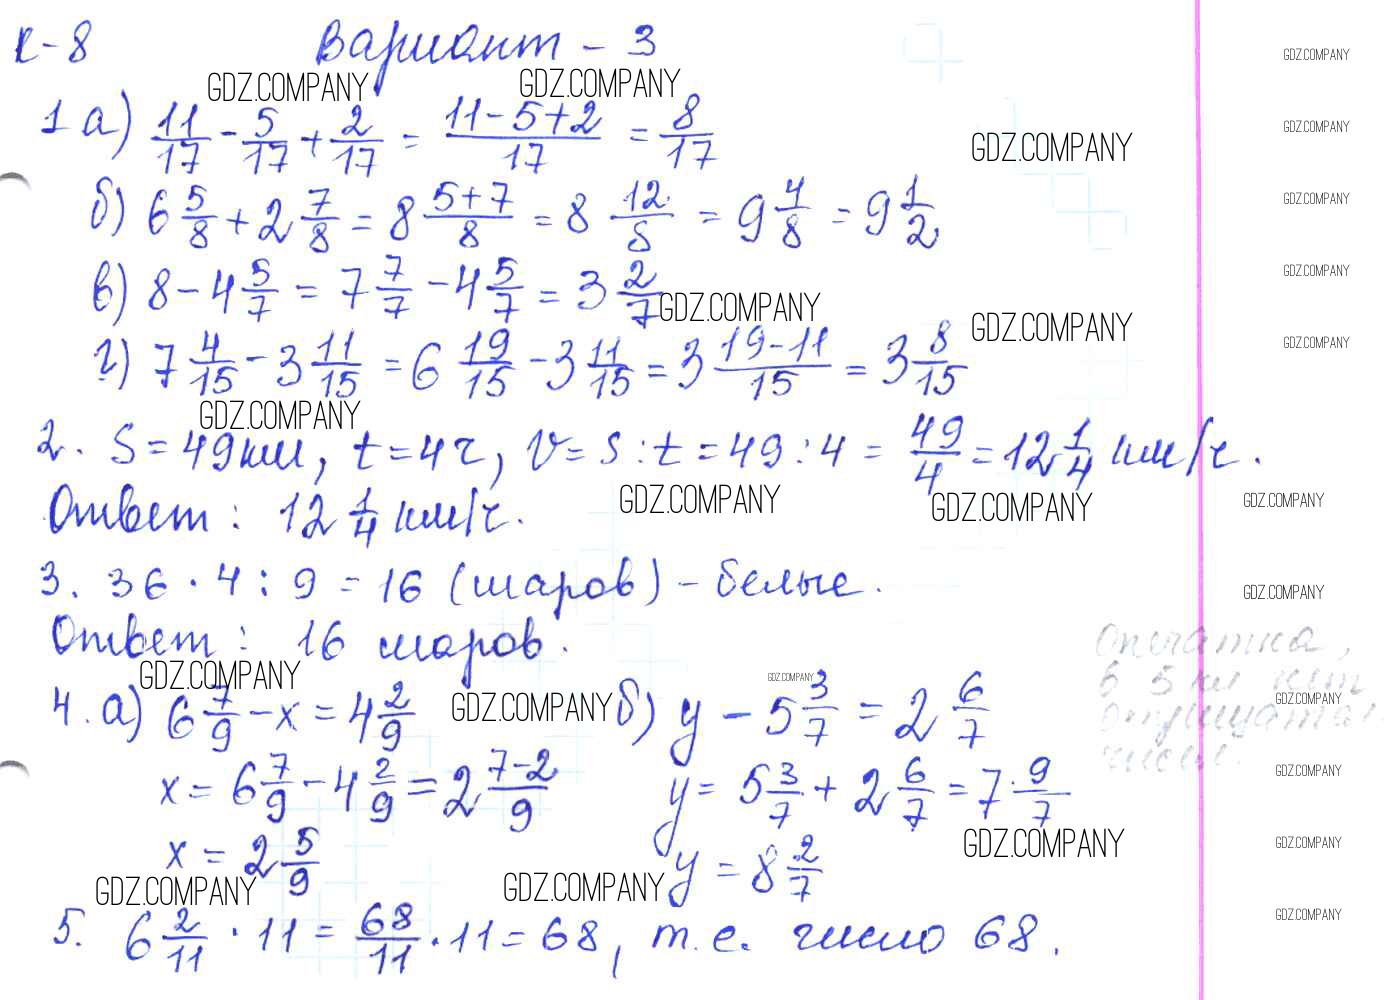 К-8 Вариант - 3
GDZ.COMPANY GDZ.COMPANY GDZ.COMPANY
1 а) 11/17 - 5/17 + 2/17 = (11-5+2)/17 = 8/17
GDZ.COMPANY GDZ.COMPANY
б) 6 5/8 + 2 7/8 = 8 (5+7)/8 = 8 12/8 = 9 4/8 = 9 1/2
GDZ.COMPANY
в) 8 - 4 5/7 = 7 7/7 - 4 5/7 = 3 2/7
GDZ.COMPANY GDZ.COMPANY GDZ.COMPANY
г) 7 4/15 - 3 11/15 = 6 19/15 - 3 11/15 = 3 (19-11)/15 = 3 8/15
GDZ.COMPANY GDZ.COMPANY
2. S = 49 км, t = 4 ч, v = s : t = 49 : 4 = 49/4 = 12 1/4 км/ч.
GDZ.COMPANY GDZ.COMPANY GDZ.COMPANY
Ответ: 12 1/4 км/ч.
3. 36 · 4 : 9 = 16 (шаров) - белые.
GDZ.COMPANY
Ответ: 16 шаров.
Опечатка,
в 5 кл нет
GDZ.COMPANY GDZ.COMPANY GDZ.COMPANY GDZ.COMPANY
4. а) 6 7/9 - x = 4 2/9 б) y - 5 3/7 = 2 6/7
чисел.
GDZ.COMPANY
x = 6 7/9 - 4 2/9 = 2 (7-2)/9 y = 5 3/7 + 2 6/7 = 7 9/7
GDZ.COMPANY GDZ.COMPANY
x = 2 5/9 y = 8 2/7
GDZ.COMPANY GDZ.COMPANY GDZ.COMPANY
5. 6 2/11 · 11 = 68/11 · 11 = 68, т.е. число 68.